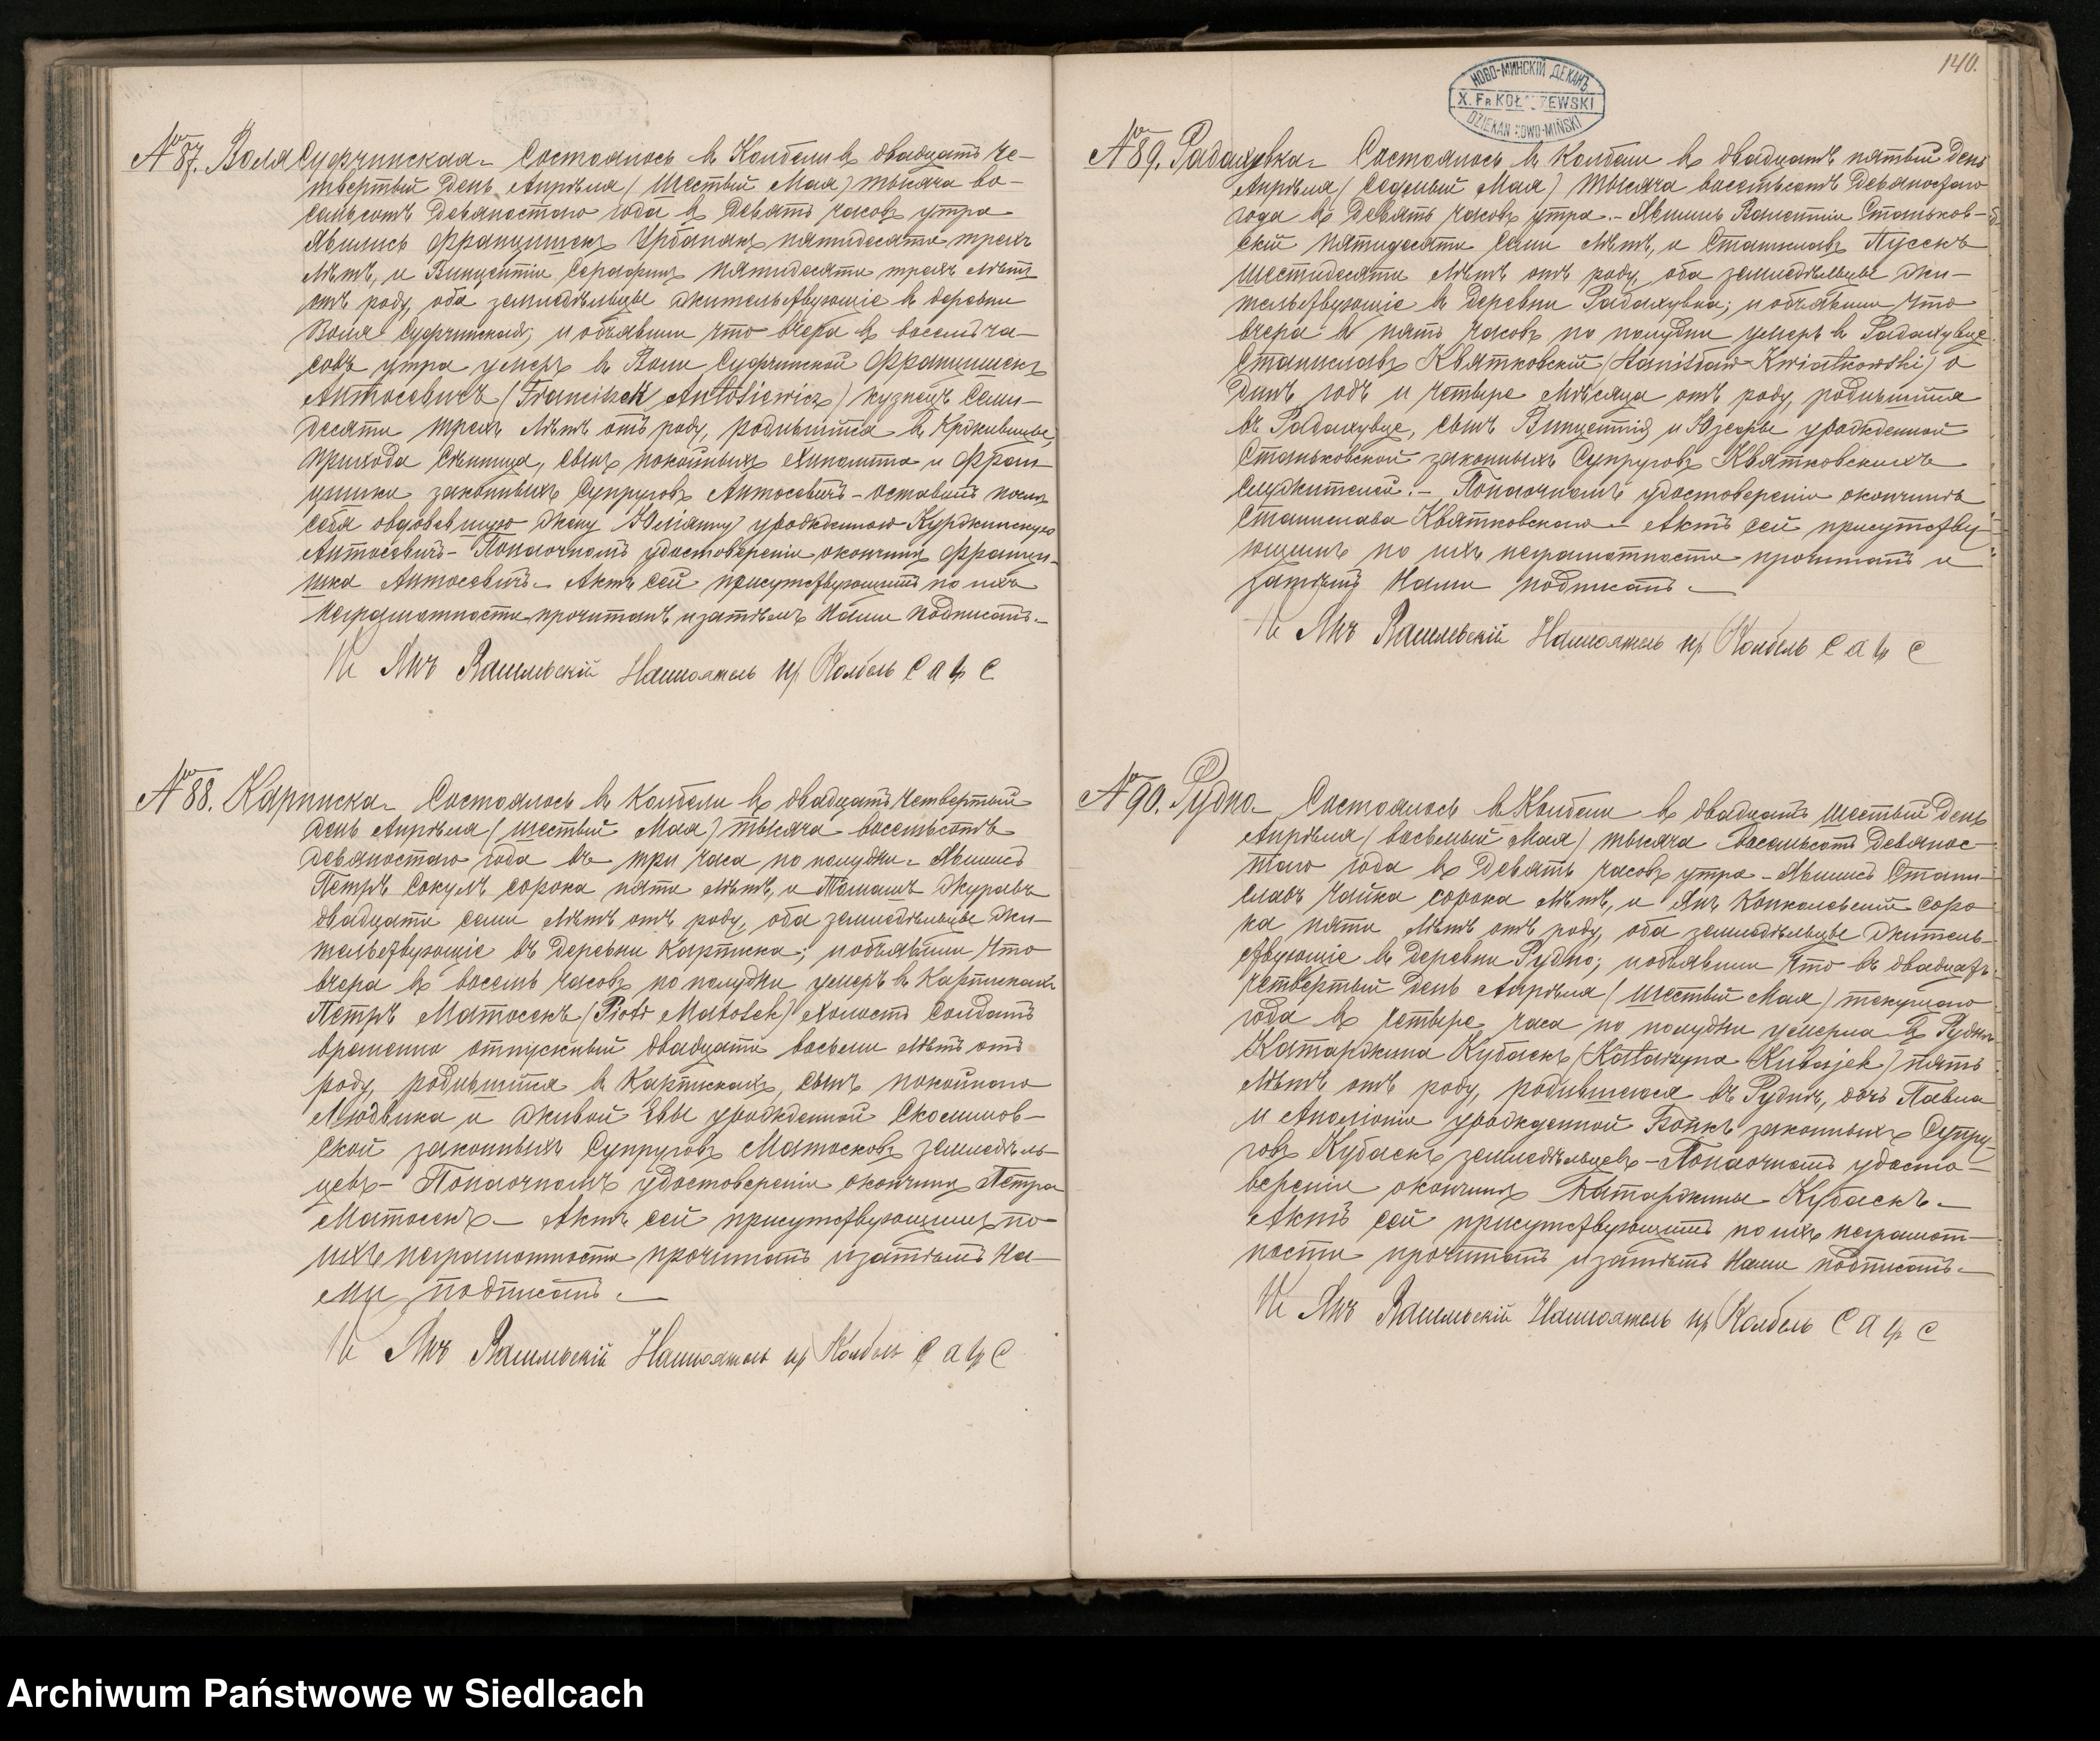 № 87. Воля Суфчинская - Состоялось въ Колбели въ двадцать че-
твертый день Апрѣля / шестый Мая / тысяча во-
семьсотъ девяностаго года въ девять часовъ утра
Явились Францишекъ Урбанякъ пятидесяти трехъ
лѣтъ, и Винцентій Серафинъ пятидесяти трехъ лѣтъ
отъ роду, оба земледѣльцы жительствующіе въ деревни
Воля Суфчинская; и объявили что вчера въ восемь ча-
совъ утра умеръ въ Воли Суфчинской Францишекъ
Антосевичъ / Franciszek Antosiewicz / кузнецъ семи-
десяти трехъ лѣтъ отъ роду, родившійся въ
прихода Сѣнница, сынъ покойныхъ и Фран-
цишки законныхъ супруговъ Антосевичъ - оставивъ послѣ
себя овдовѣвшую жену Юліанну урожденною
Антосевичъ - Поналочномъ удостовѣреніи окончины Францы-
шка Антосевичъ - Актъ сей присутствующимъ по ихъ
неграмотности прочитанъ и затѣмъ Нами подписанъ. -
Кс Янъ Настоятель пр Колбель С А Гр С
№ 88. Карписка - Состоялось въ Колбели въ двадцать четвертый
день Апрѣля / шестый Мая / тысяча восемьсотъ
девяностаго года въ три часа по полудни - Явились
Петръ Сокулъ сорока пяти лѣтъ, и Томашъ Журавъ
двадцати семи лѣтъ отъ роду, оба земледѣльцы жи-
тельствующіе въ деревни Карписка; и объявили что
вчера въ восемь часовъ по полудни умеръ въ Карпискахъ
Петръ Матосекъ / Piotr Matosek / холостъ солдатъ
временно отпускный двадцати восьми лѣтъ отъ
роду, родившійся въ Карпискахъ, сынъ покойнаго
Людвика и живой Эвы урожденной Скосинов-
ской законныхъ супруговъ Матосковъ земледѣль-
цевъ - Поналочномъ удостовѣреніи окончины Петра
Матосекъ - Актъ сей присутствующимъ по
ихъ неграмотности прочитанъ и затѣмъ На-
ми подписанъ. -
Кс Янъ Настоятель пр Колбель С А Гр С
140.
НОВО-МИНСКІЙ ДЕКАНЪ
X. Fr. KOŁ ZEWSKI
DZIEKAN NOWO-MIŃSKI
№ 89. Радаховка - Состоялось въ Колбели въ двадцать пятый день
Апрѣля / седьмый Мая / тысяча восемьсотъ девяностаго
года въ девять часовъ утра. - Явились Валентій Станьков-
скій пятидесяти семи лѣтъ, и Станиславъ
шестидесяти лѣтъ отъ роду, оба земледѣльцы жи-
тельствующіе въ деревни Радаховка; и объявили что
вчера въ пять часовъ по полудни умеръ въ Радаховце
Станиславъ Квятковскій / Stanisław Kwiatkowski / о
динъ годъ и четыре мѣсяца отъ роду, родившійся
въ Радаховце, сынъ Винцентія и Юзефы урожденной
Станьковской законныхъ супруговъ Квятковскихъ
служителей. - Поналочномъ удостовѣреніи окончины
Станислава Квятковскаго - Актъ сей присутству-
ющимъ по ихъ неграмотности прочитанъ и
затѣмъ Нами подписанъ. -
Кс Янъ Настоятель пр Колбель С А Гр С
№ 90. Рудно - Состоялось въ Колбели въ двадцать шестый день
Апрѣля / восьмый Мая / тысяча восемьсотъ девянос-
таго года въ девять часовъ утра - Явились Стани-
славъ Чайка сорока лѣтъ, и Янъ соро
ка пяти лѣтъ отъ роду, оба земледѣльцы житель-
ствующіе въ деревни Рудно; и объявили что въ двадцать
четвертый день Апрѣля / шестый Мая / текущаго
года въ четыре часа по полудни умерла въ Руднѣ
Катаржина Кубаекъ / Katarzyna Kubajek / пять
лѣтъ отъ роду, родившаяся въ Руднѣ, дочь Павла
и Аполіоніи урожденной Бонкъ законныхъ супру-
говъ Кубаекъ земледѣльцевъ - Поналочномъ удосто-
вѣреніи окончины Катаржины Кубаекъ. -
Актъ сей присутствующимъ по ихъ неграмот-
ности прочитанъ и затѣмъ Нами подписанъ. -
Кс Янъ Настоятель пр Колбель С А Гр С
Archiwum Państwowe w Siedlcach